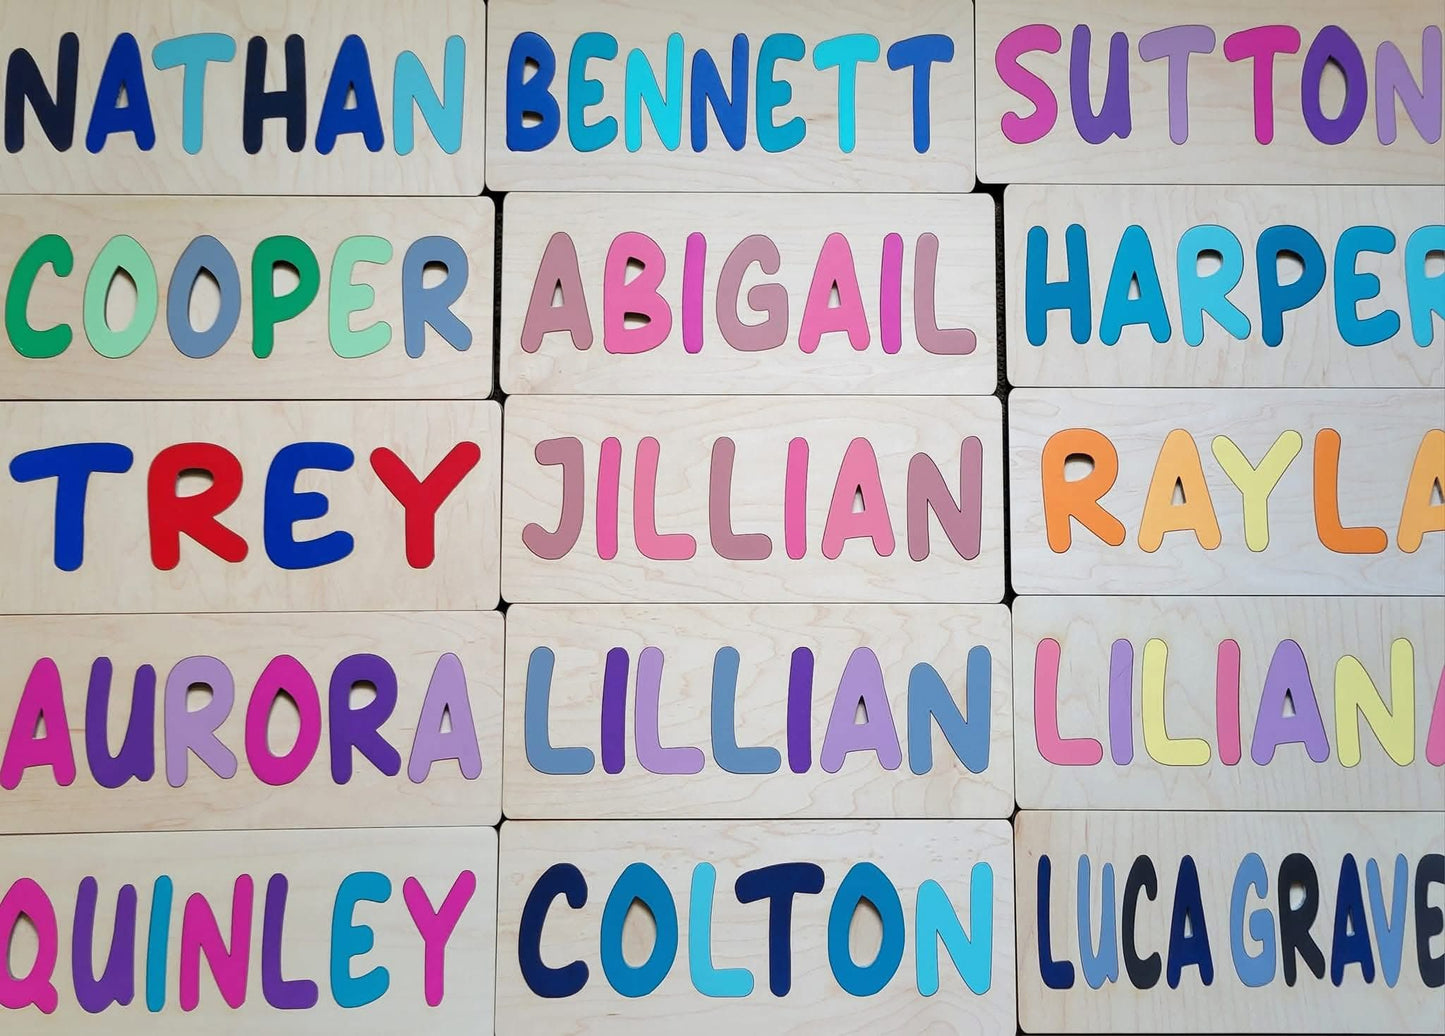 NATHAN BENNETT SUTTON
COOPER ABIGAIL HARPER
TREY JILLIAN RAYLA
AURORA LILLIAN LILIANA
QUINLEY COLTON LUCA GRAVE